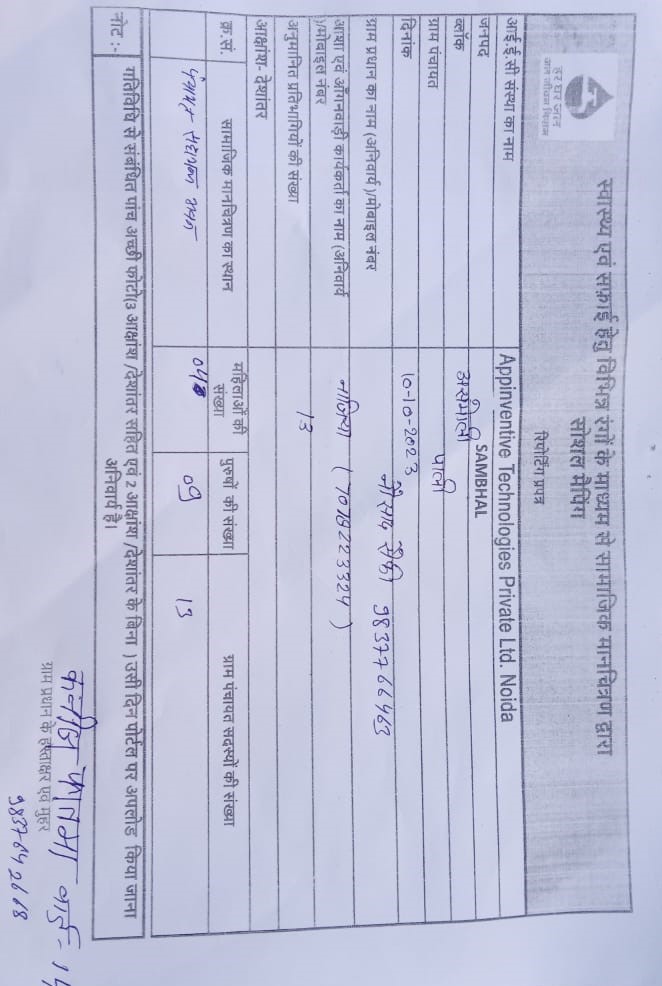 हर घर जल
जल जीवन मिशन
स्वास्थ्य एवं सफ़ाई हेतु विभिन्न रंगों के माध्यम से सामाजिक मानचित्रण द्वारा
सोशल मैपिंग
रिपोर्टिंग प्रपत्र
आई.ई.सी संस्था का नाम Appinventive Technologies Private Ltd. Noida
जनपद SAMBHAL
ब्लॉक असमोली
ग्राम पंचायत पाली
दिनांक 10-10-2023
ग्राम प्रधान का नाम (अनिवार्य )/मोबाइल नंबर नौसाद सैफी 9837766463
आशा एवं आँगनवाड़ी कार्यकर्ता का नाम (अनिवार्य
)/मोबाइल नंबर नाजिया ( 7019223324 )
अनुमानित प्रतिभागियों की संख्या 13
आक्षांश- देशांतर
क्र.सं. सामाजिक मानचित्रण का स्थान महिलाओं की संख्या पुरुषों की संख्या ग्राम पंचायत सदस्यों की संख्या
04 09 13
नोट :- गतिविधि से संबंधित पांच अच्छी फोटो(3 आक्षांश /देशांतर सहित एवं 2 आक्षांश /देशांतर के बिना ) उसी दिन पोर्टल पर अपलोड किया जाना
अनिवार्य है।
फातमा वार्ड = 14
ग्राम प्रधान के हस्ताक्षर एवं मुहर
9837642668